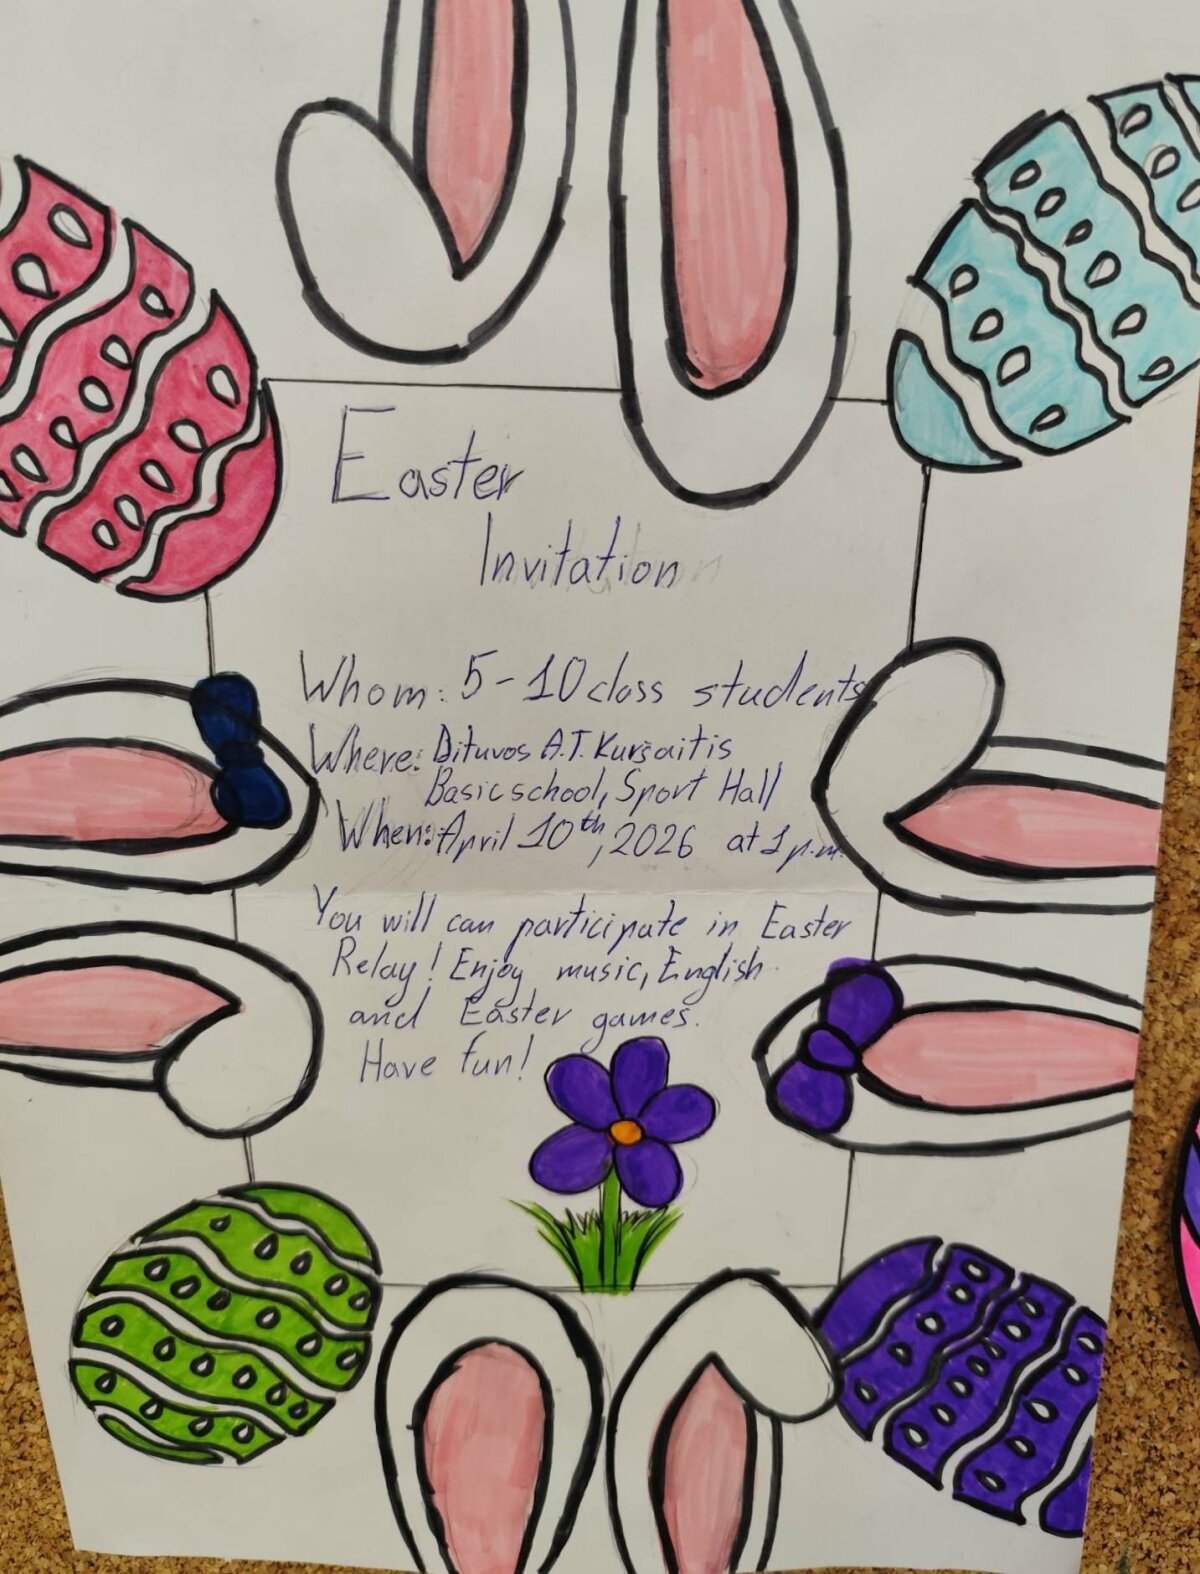 Easter
Invitation
Whom: 5-10 class students
Where: Dituvos A.T. Kuršaitis
Basic school, Sport Hall
When: April 10th, 2026 at 1 p.m.
You will can participate in Easter
Relay! Enjoy music, English
and Easter games.
Have fun!